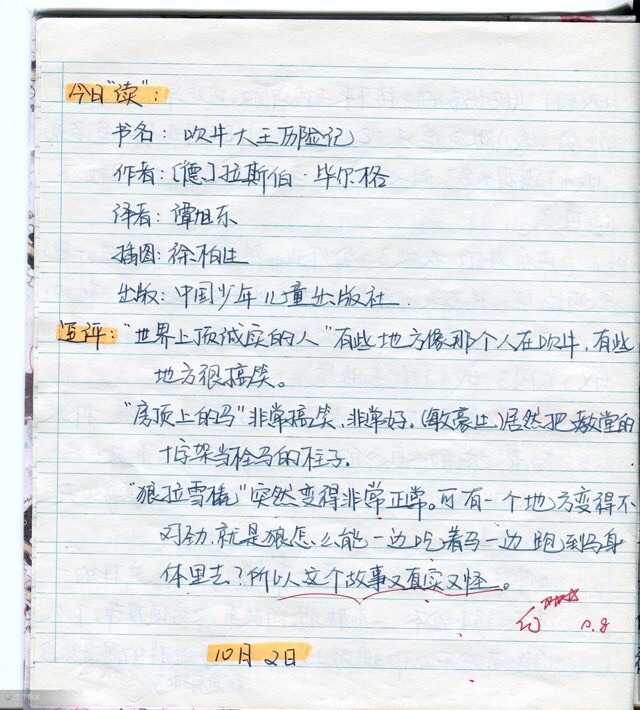 今日"读"：
书名：吹牛大王历险记
作者：[德]拉斯伯·毕尔格
译者：谭旭东
插图：徐柏生
出版：中国少年儿童出版社.
写评："世界上顶诚实的人"有些地方像那个人在吹牛,有些
地方很搞笑。
"房顶上的马"非常搞笑、非常好.(敏豪生)居然把教堂的
十字架当栓马的柱子.
"狼拉雪橇"突然变得非常正常。可有一个地方变得不
对劲.就是狼怎么能一边吃着马一边跑到马身
体里去?所以这个故事又真实又怪。
10.8
10月2日